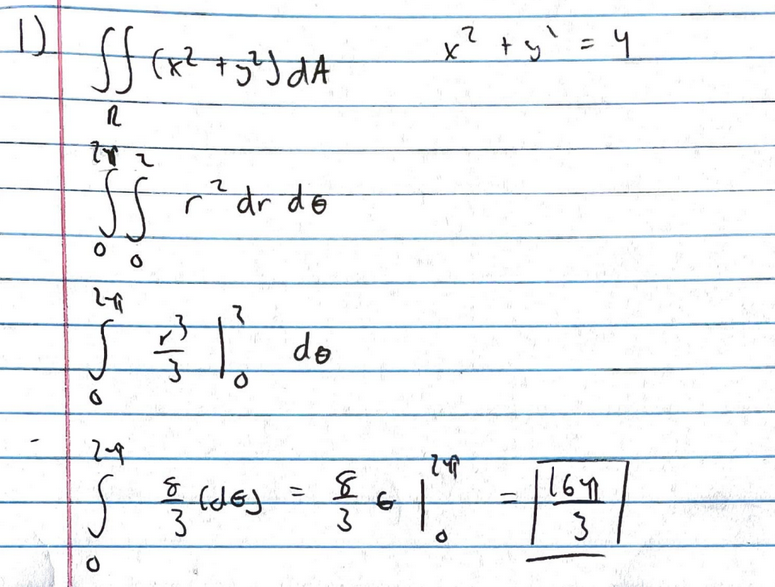 1) ∬_R (x² + y²) dA    x² + y` = 4
∫_0^{2π} ∫_0^2 r² dr dθ
∫_0^{2π} r³/3 |_0^2 dθ
∫_0^{2π} 8/3 (dθ) = 8/3 θ |_0^{2π} = 16π/3